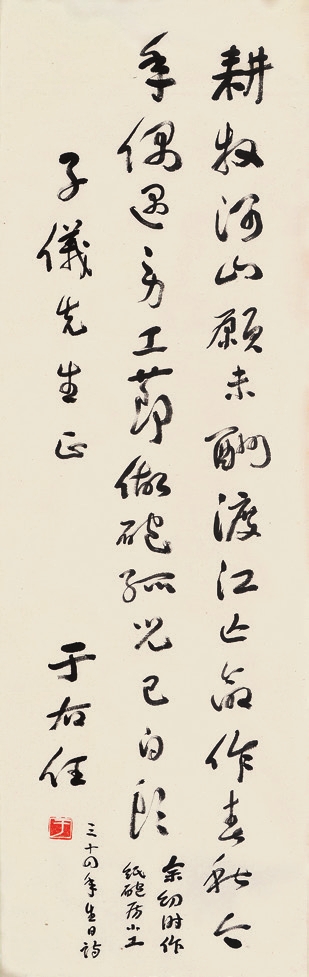 耕牧河山願未酬渡江亡命作春秋今
年偶過勞工節做砲孤兒已白頭
余幼时作
紙砲房小工
三十四年生日詩
子儀先生正
于右任
于